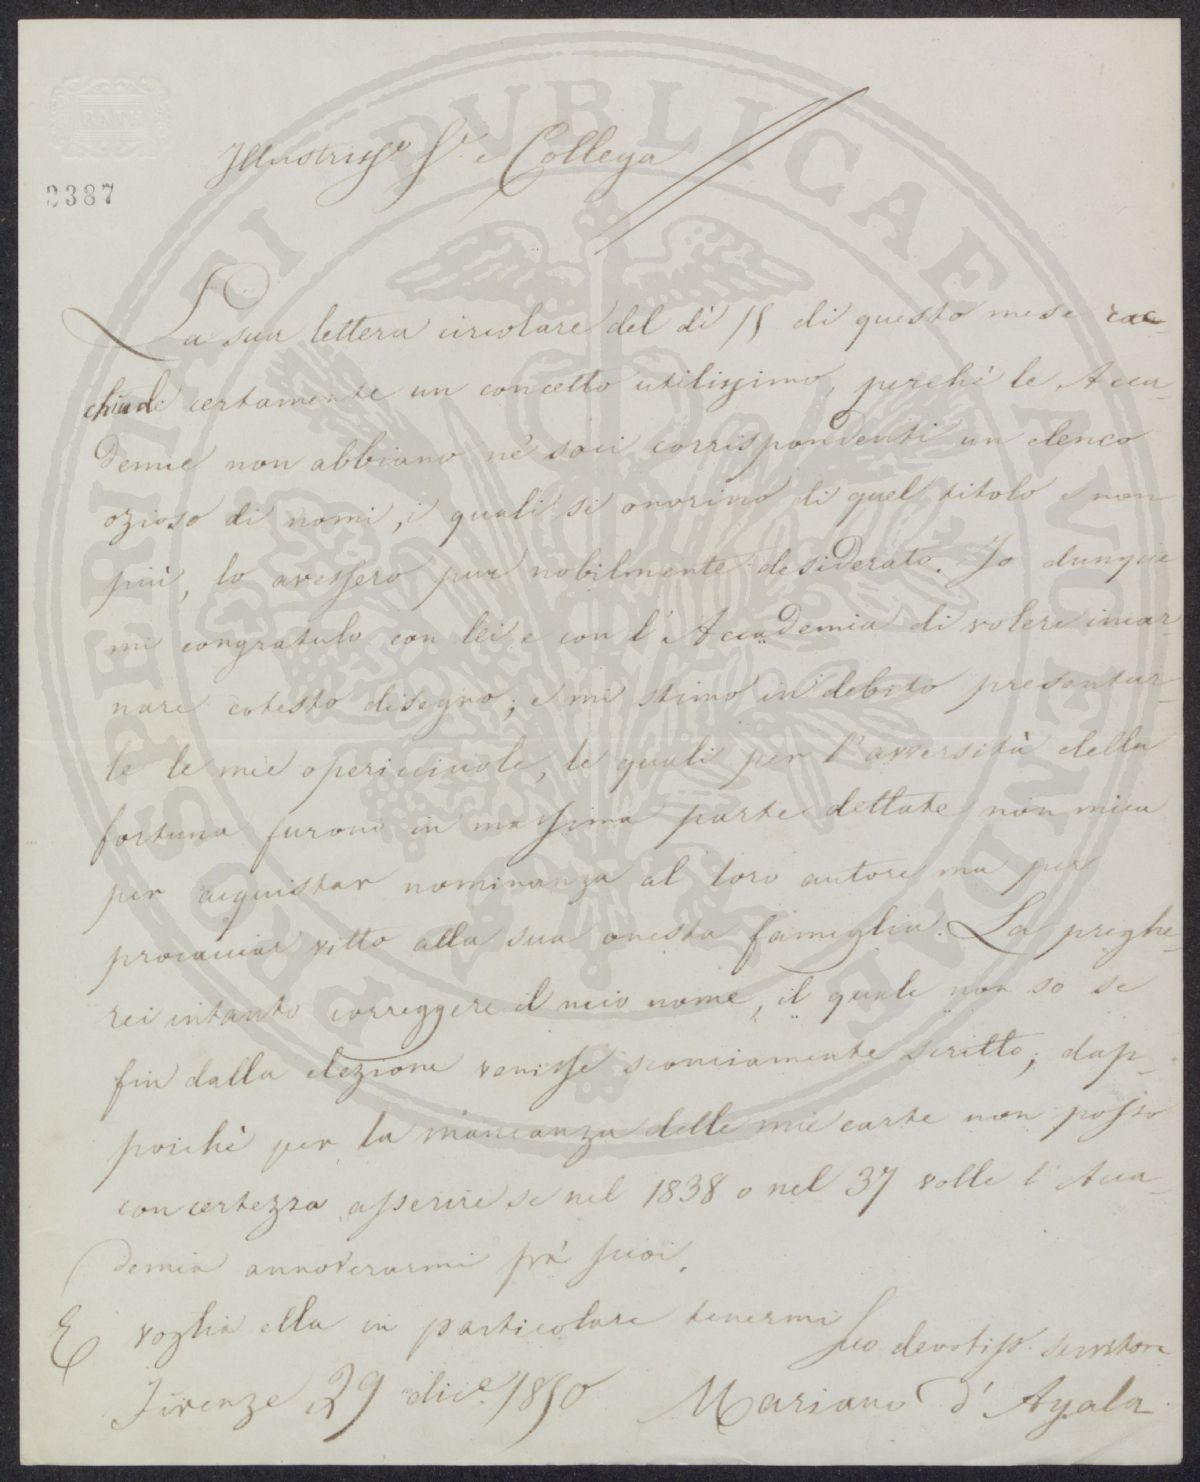 2387
Illustriss.º S.r e Collega
La sua lettera circolare del dì 15 di questo mese rac-
chiude certamente un concetto utilissimo, perchè le Acca-
demie non abbiano nè soci corrispondenti un elenco
ozioso di nomi, i quali si onorino di quel titolo e non
più, lo avessero pur nobilmente desiderato. Io dunque
mi congratulo con lei e con l'Accademia di volere incar-
nare cotesto disegno; e mi stimo in debito presentar-
le le mie opericciuole, le quali per l'avversità della
fortuna furono in massima parte dettate non mica
per acquistar nominanza al loro autore ma per
procacciar vitto alla sua onesta famiglia. La preghe-
rei intanto correggere il mio nome, il quale non so se
fin dalla elezione venisse sconciamente scritto; dap-
poichè per la mancanza delle mie carte non posso
con certezza asserire se nel 1838 o nel 37 volle l'Acca-
demia annoverarmi frà suoi.
E voglia ella in particolare tenermi
Suo devotiss. servitore
Firenze 29 dic.e 1850 Mariano d'Ayala